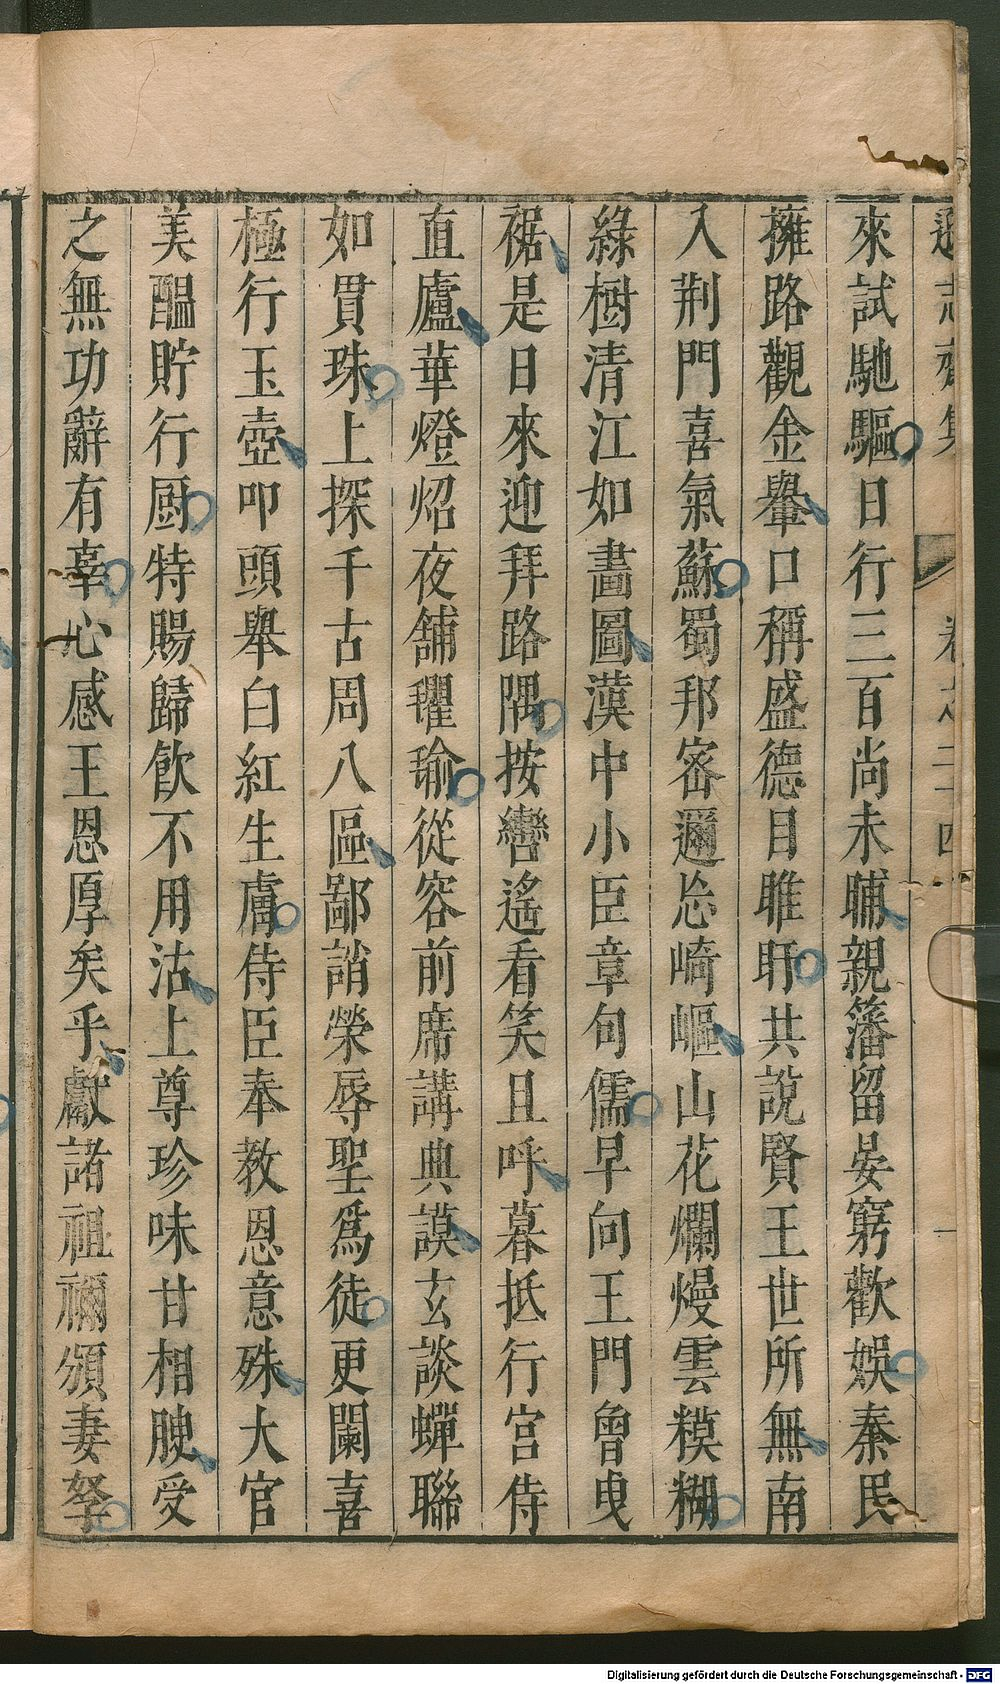 遜志齋集 卷之二十四 一
來試馳驅日行三百尚未晡親藩留晏窮歡娛秦民
擁路觀金轝口稱盛德目睢盱共說賢王世所無南
入荆門喜氣蘇蜀邦密邇忘崎嶇山花爛熳雲糢糊
綠樹清江如畫圖漢中小臣章句儒早向王門曾曳
裾是日來迎拜路隅按轡遙看笑且呼暮抵行宮侍
直廬華燈炤夜舖氍毹從容前席講典謨玄談蟬聯
如貫珠上探千古周八區鄙誚榮辱聖爲徒更闌喜
極行玉壺叩頭舉白紅生膚侍臣奉教恩意殊大官
美醞貯行厨特賜歸飲不用沽上尊珍味甘相腴受
之無功辭有辜心感王恩厚矣乎獻諸祖禰頒妻孥
Digitalisierung gefördert durch die Deutsche Forschungsgemeinschaft - DFG